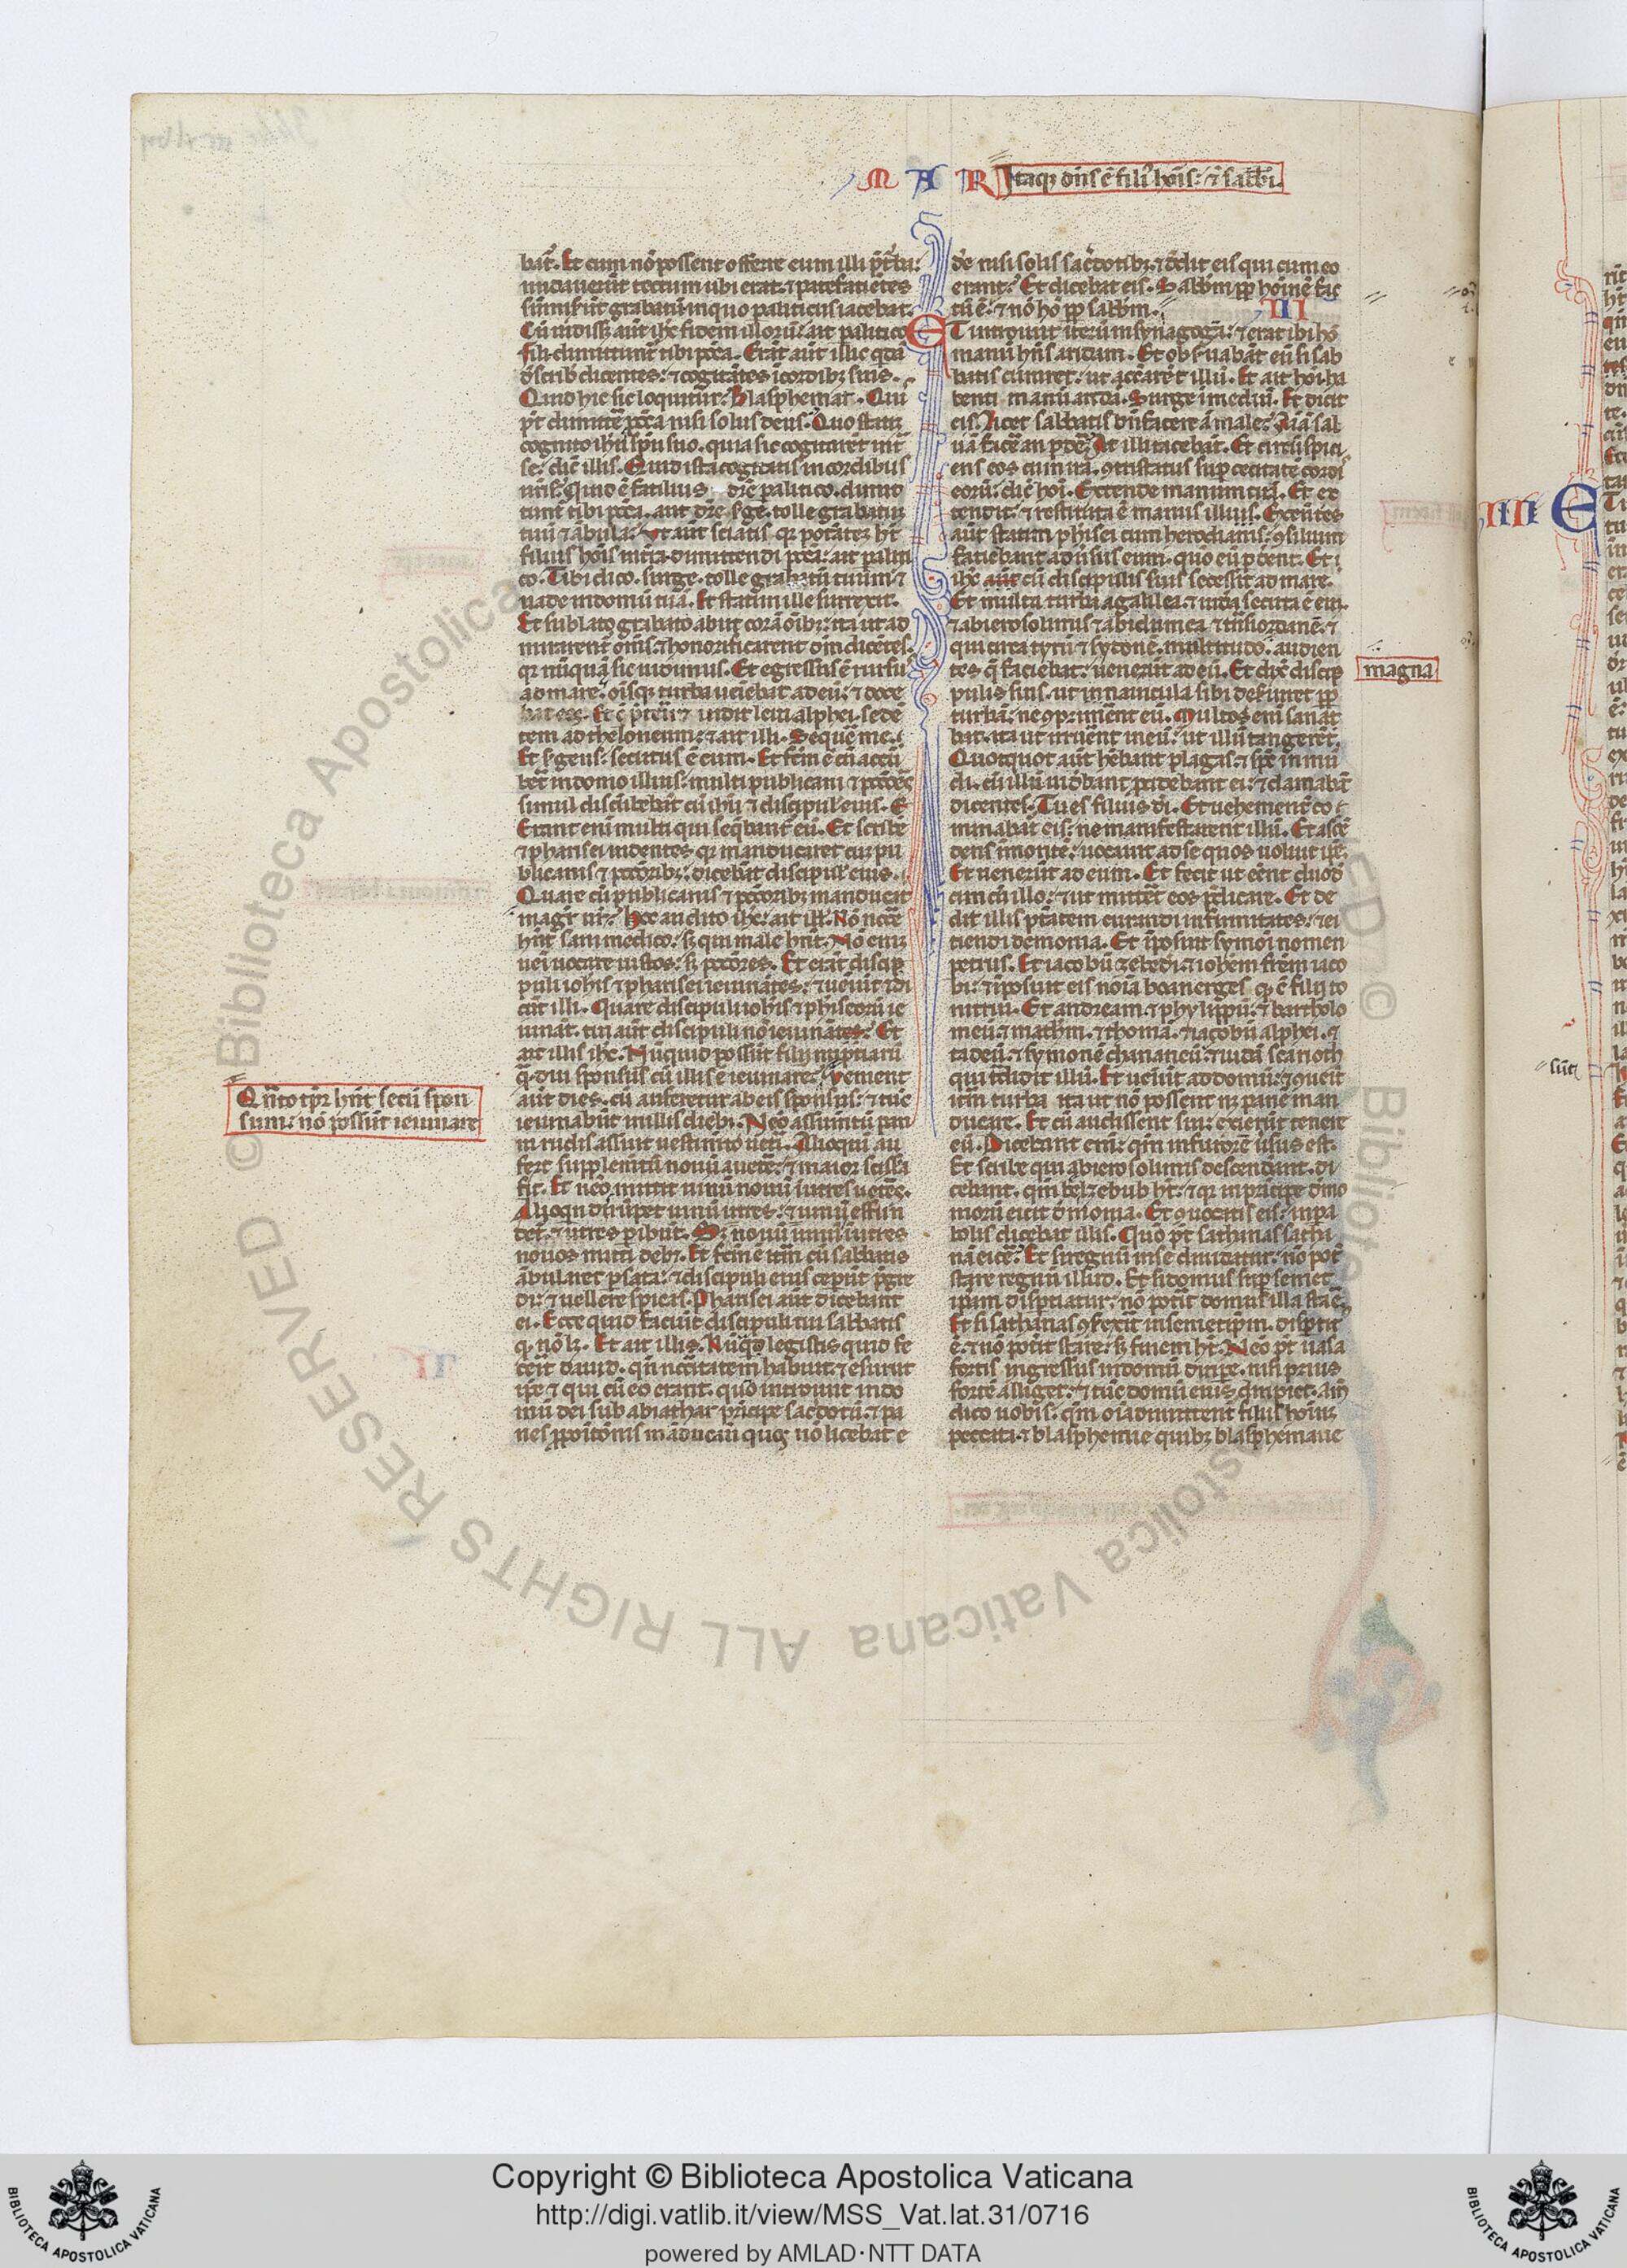 M A R
Itaq; dn̄s ē fili' hoīs: ⁊ sabb̄i.
bat̄. Et cum nō possent offerre eum illi p̄ t̄ba:
nudauerūt tectum ubi erat. ⁊ patefatiētes
sūmiserūt grabatū in quo paliticus iacebat.
Cū uidiss; aūt ih̄c fidem illorū: ait palitico
fili dimittunt̄ tibi pc̄ca. Erāt aūt illic qdā
de scrib̄ dicentes: ⁊ cogitātes ī cordib; suis.
Quid hic sic loquitur? Blasphemat. Qui
pt̄ dimitte pc̄ca nisi solus deus. Quo statī
cognito ih̄u sp̄u suo. quia sic cogitarēt int̄
se: dic̄ illis. Quid ista cogitatis in cordibus
ur̄is? Quid ē fatilius dic̄e palitico. dimit
tunt̄ tibi pc̄ca. aut dic̄e s'ge. tolle grabatū
tuū ⁊ ābula? Vt aūt sciatis q; potātez ht̄
filius hoīs int̄ra dimittendi pc̄ca: ait paliti
co. Tibi dico. surge. tolle grabatū tuum ⁊
uade in domū tuā. Et statim ille surrexit.
Et sublato grabato abiit corā oīb;: ita ut ad
mirarent̄ om̄s. ⁊ honorificarent dm̄ dicētes.
q; nūquā sic uidimus. Et egressus ē rursū
ad mare. oīsq; turba ueiebat ad eū: ⁊ doce
bat eos. Et c̄ p̄teriit uidit leui alphei. sedē
tem ad theloneum: ⁊ ait illi. Sequē me.
Et s'gens: secutus ē eum. Et fc̄m ē cū accū
bēt in domo illius: multi publicani ⁊ pccōes
simul discūbebāt cū ih̄u ⁊ discipul' eius. E
Erant eni multi qui seq̄bant̄ eū. Et scribe
⁊ pharisei uidentes q; manducaret cū pu
blicanis ⁊ pccōrib;: dicebāt discipul' eius.
Quare cū publicanis ⁊ pccōrib; manducat
magr̄ ur̄? Hoc audito ih̄c: ait ill'. Nō nccē
hn̄t sani medico: s; qui male hn̄t. Nō enī
ueī uocare iustos: s; pccōres. Et erāt discip
puli ioh̄is ⁊ pharisei ieiunātes: ⁊ ueiūt ⁊ di
cūt illi. Quare discipuli ioh̄is ⁊ phiseorū ie
iunāt. tui aūt discipuli nō ieiunātes? Et
ait illis ih̄c. Nūquid possūt filij nuptiarū
q̄diu sponsus cū illis ē ieiunare? Venient
Qn̄to tp̄r hn̄t secū spon
sum: nō possūt ieiunare
aūt dies. cū auferetur ab eis sponsus: ⁊ tūc
ieiunabūt in illis dieb;. Nēo assumtū pan
ni rudis assuit uestim̄to ueti. Alioqui au
fert supplem̄tū nouū a uetēi: ⁊ maior scissa
fit. Et nēo mittit uinū nouū ī utres uetes.
Alioqn̄ dirūpet uinū utres: ⁊ uinū effun
det: ⁊ utres p̄ibūt. S; nouū uinū ī utres
nouos mitti deb;. Et fc̄m ē itm̄ cū sabbatis
ābularet p sata: ⁊ discipuli eius cep̄ūt p̄gre
di: ⁊ uellere spicas. Pharisei aūt dicebant
ei. Ecce quid faciūt discipuli tui sabbatis
q; nō l;. Et ait illis. Nūq̄ legistis quid fe
cerit dauid. qn̄ nccitatem habuit: ⁊ esuriit
ipe ⁊ qui cū eo erant. quō introiuit in do
mū dei sub abiathar p̄ncipe sacdotū. ⁊ pa
nes ppoitōnis māducauit quos nō licebat e
de nisi solis sacdotib;. ⁊ dedit eis qui cum eo
erant? Et dicebat eis. Sabb̄m pp hoīnē fac
tū ē: ⁊ nō hō pp sabb̄m. III
ET introiuit iterū in synagogā: ⁊ erat ibi hō
manū hn̄s aridam. Et obs'uabāt eū si sab
batis curaret: ut accarēt illū. Et ait hoī ha
benti manū aridā. Surge ī mediū. Et dicit
eis. Licet sabbatis bn̄facere ā male? Aīā sal
uā facē an pdē? At illi tacebāt. Et circūspici
ens eos cum ira. ꝯtristatus sup cecitate cordi
eorū: dic̄ hoī. Extende manum tuā. Et ex
tendit: ⁊ restituta ē manus illius. Exeūtes
aūt statim ph'isei cum herodianis: ꝯsilium
fatiebant adūsus eum. quō eū p̄dent. Et
ih̄c aūt cū discipulis suis secessit ad mare.
Et multa turba a galilea ⁊ iudea secuta ē eū.
⁊ ab ierosolimis ⁊ ab idumea ⁊ trāsiordanē: ⁊
qui circa tyrū ⁊ sydonē. multitudo. audien
magna
tes q̄ faciebat: uenerūt ad eū. Et dix̄ discip
pulis suis. ut in nauicula sibi deseruiret pp
turbā: ne ꝯprim̄ent eū. Multos eni sanāt
bat. ita ut irruēnt in eū: ut illū tangerēt.
Quotquot aūt hēbant plagas. ⁊ sp̄c inmū
di. cū illū uidebāt. p̄cidebant ei: ⁊ clamabāt
dicentes. Tu es filius di. Et uehement̄ cō
minabāt̄ eis: ne manifestarent illū. Et ascē
dens ī montē: uocauit ad se quos uoluit ipē.
Et uenerūt ad eum. Et fecit ut eēnt duod̄
cim cū illo: ⁊ ut mittet̄ eos p̄dicare. Et de
dit illis p̄tātem curandi infirmitates: ⁊ ei
tiendi demonia. Et īposuit symoī nomen
petrus. Et iacobū zebedei. ⁊ ioh̄em frēm iaco
bi: ⁊ īposuit eis noīa boanerges. q; ē filij to
nitrui. Et andream. ⁊ phylippū. ⁊ bartholo
meū. ⁊ math̄m. ⁊ thomā. ⁊ iacobū alphei. ⁊
tadeū. ⁊ symonē chananeū. ⁊ iudā scarioth
qui t̄didit illū. Et ueiūt ad domū: ⁊ ꝯueīt
itm̄ turba ita ut nō possent n; panē man
ducare. Et cū audissent sui: exierūt tenere
eū. Dicebant eni: qm̄ in furorē ūsus est.
Et scribe qui ab ierosolimis descendānt. di
cebant. qm̄ belzebub ht̄: ⁊ q; in p̄ncipe demo
niorū eicit demonia. Et ꝯuocatis eis: in pa
bolis dicebat illis. Quō pt̄ sathanas satha
nā eicē? Et si regnū in se diuidatur: nō pot̄
stare regnū illud. Et si domus sup semet
ipsam disptiatur: nō potīt domus illa stāē.
Et si sathanas ꝯs'rexit in semetipm̄. disp̄tit'
ē: ⁊ nō potit stare: s; finem ht̄. Nēo pt̄ uasa
fortis ingressus in domū diripe. nisi prius
fortē alliget: ⁊ tūc domū eius diripiet. am̄
dico uobis: qm̄ oīa dimittent̄ filiis hoīuz
peccata. ⁊ blasphemie quib; blasphemaue
sūt
IIII
E
Copyright © Biblioteca Apostolica Vaticana
http://digi.vatlib.it/view/MSS_Vat.lat.31/0716
powered by AMLAD·NTT DATA
BIBLIOTECA APOSTOLICA VATICANA
BIBLIOTECA APOSTOLICA VATICANA
© Biblioteca Apostolica Vaticana ALL RIGHTS RESERVED